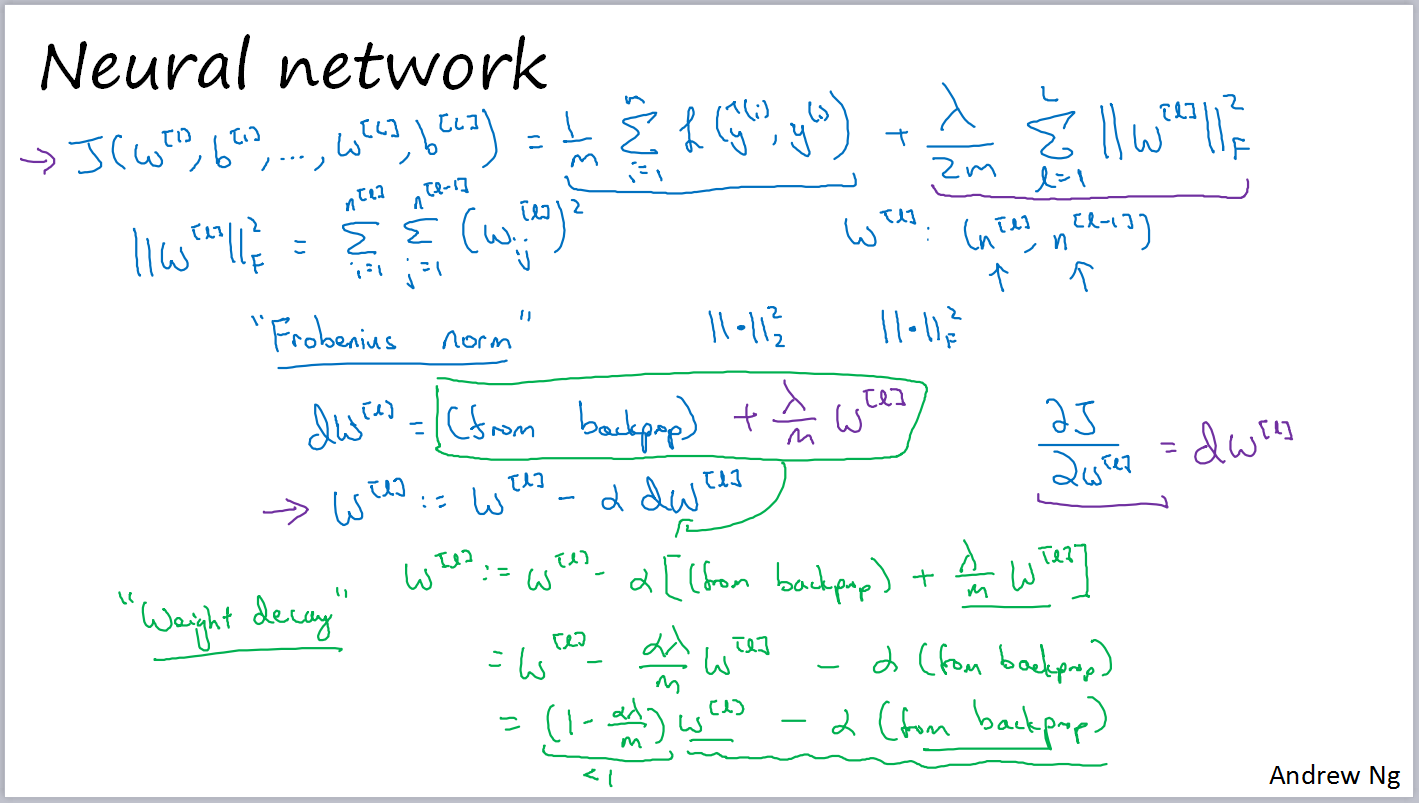 Neural network
→ J(w^[1], b^[1], ..., w^[L], b^[L]) = 1/m Σ_{i=1}^{m} L(ŷ^(i), y^(i)) + λ/2m Σ_{l=1}^{L} ||w^[l]||_F^2
||w^[l]||_F^2 = Σ_{i=1}^{n^[l]} Σ_{j=1}^{n^[l-1]} (w_ij^[l])^2 w^[l]: (n^[l], n^[l-1])
↑ ↑
"Frobenius norm" ||·||_2^2 ||·||_F^2
dw^[l] = (from backprop) + λ/m w^[l]
∂J/∂w^[l] = dw^[l]
→ w^[l] := w^[l] - α dw^[l]
"Weight decay"
w^[l] := w^[l] - α[(from backprop) + λ/m w^[l]]
= w^[l] - αλ/m w^[l] - α (from backprop)
= (1 - αλ/m) w^[l] - α (from backprop)
<1
Andrew Ng